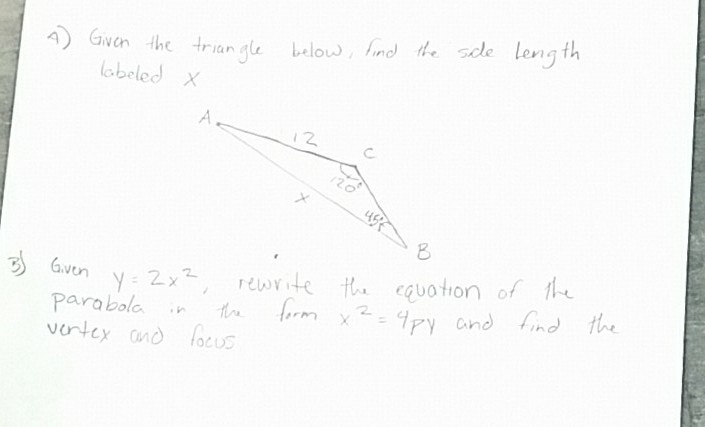 A) Given the triangle below, find the side length
labeled x
A
12
C
120°
x
45°
B
B) Given y = 2x², rewrite the equation of the
parabola in the form x² = 4py and find the
vertex and focus